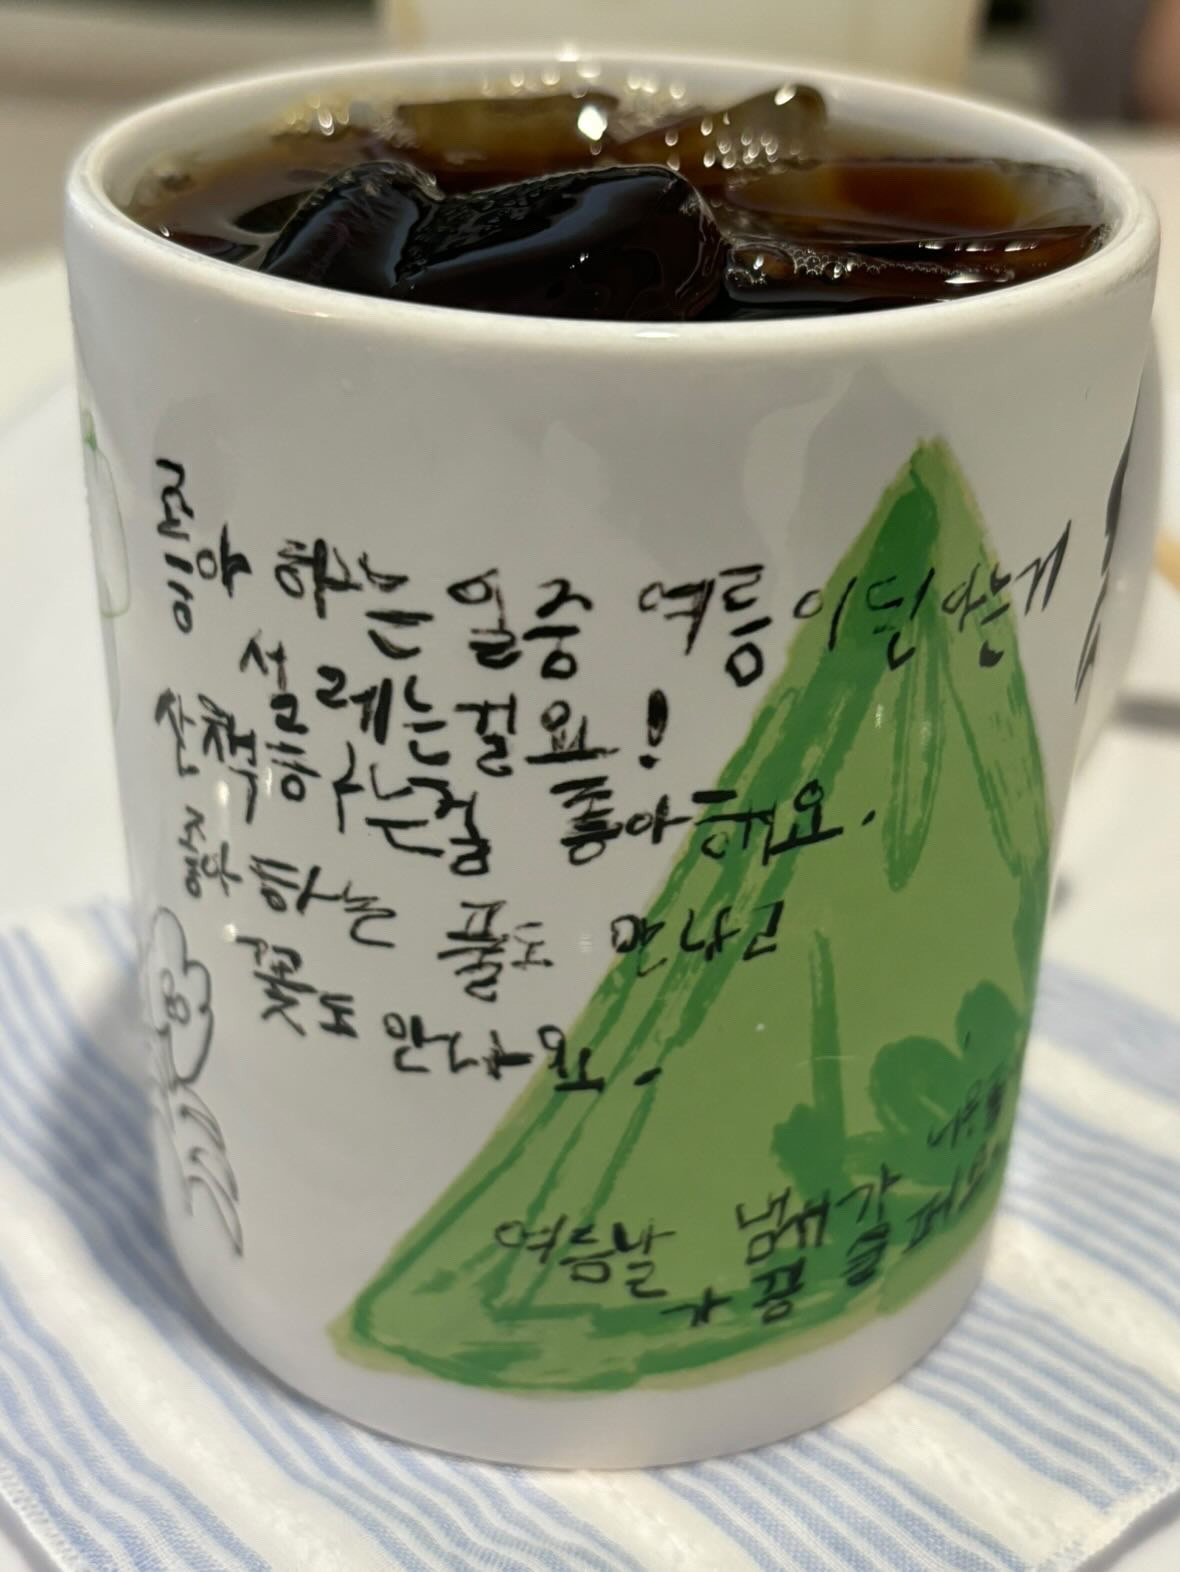 좋아 하는 일중 여름이란는게
설레는걸요!
산책하는걸 좋아해요.
좋아하는 풀도 만나고
꽃도 만나요.
여름날 냄새가
가